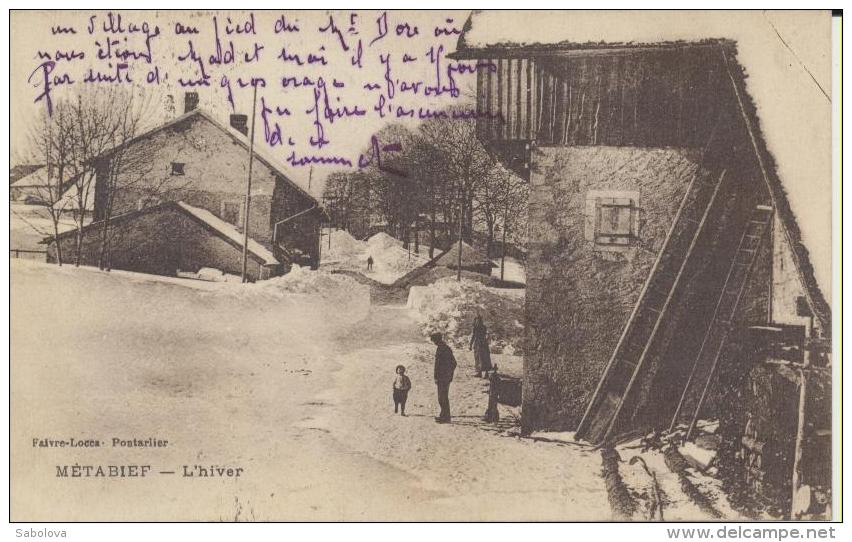 un village au pied du Mt Dore où
nous étions Mad et moi il y a 15 jours
Par suite d'un gros orage n'avons
pu faire l'ascension
de ct
sommet
Faivre-Locca - Pontarlier
MÉTABIEF — L'hiver
Sabolova
www.delcampe.net